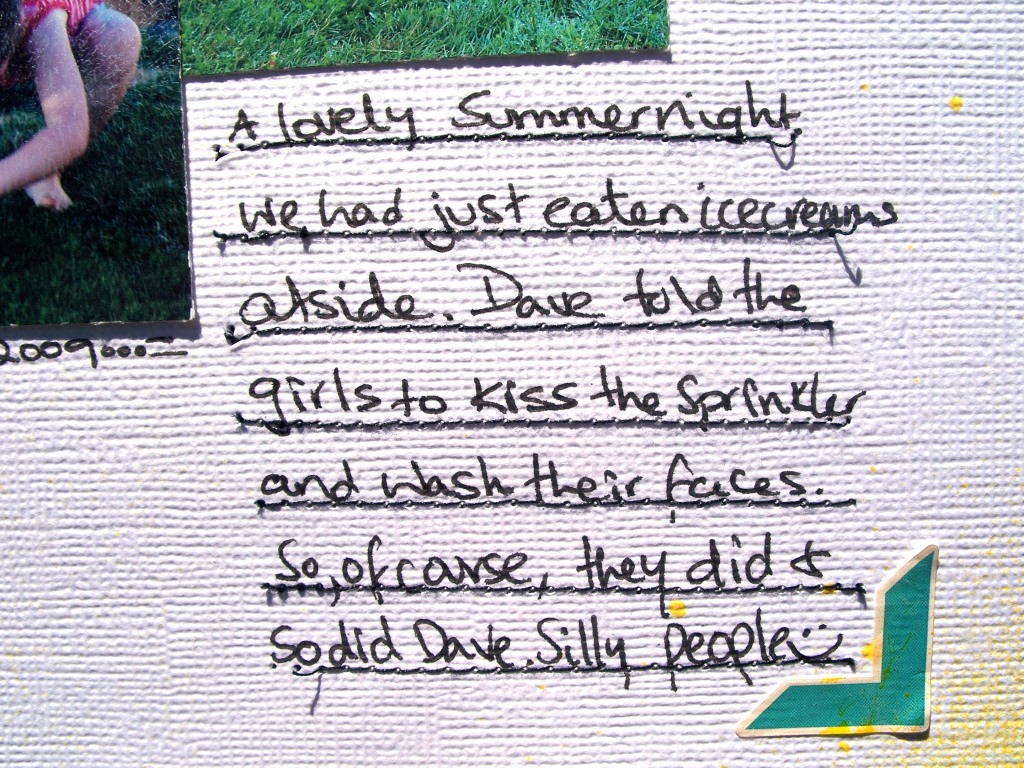 A lovely Summernight
we had just eaten icecreams
outside. Dave told the
2009...
girls to kiss the Sprinkler
and wash their faces.
So, of course, they did &
So did Dave. Silly people :)